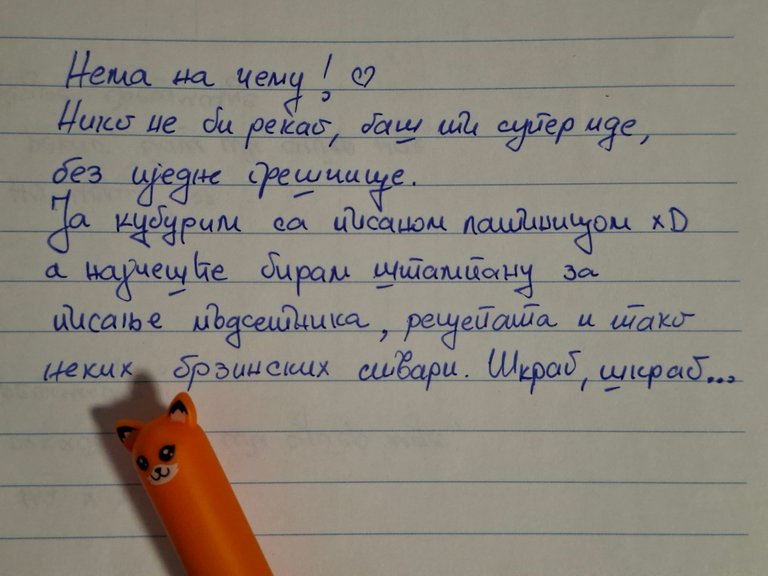 Нема на чему! ♡
Нико не би рекао, баш ти супер иде,
без иједне грешчице.
Ја кубурим са писаном латиницом xD
а најчешће бирам штампану за
писање подсетника, рецепата и тако
неких брзинских ствари. Шкраб, шкраб...